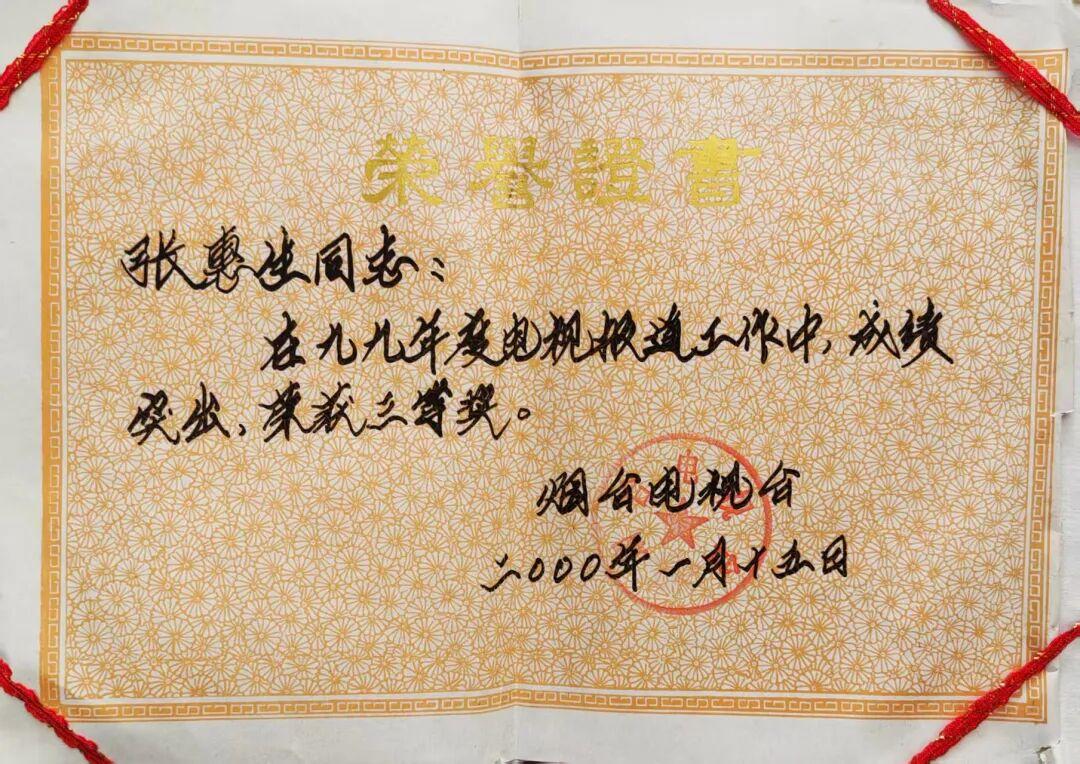 荣譽證書
张惠生同志：
在九九年度电视报道工作中，成绩
突出，荣获三等奖。
烟台电视台
二000年一月十五日